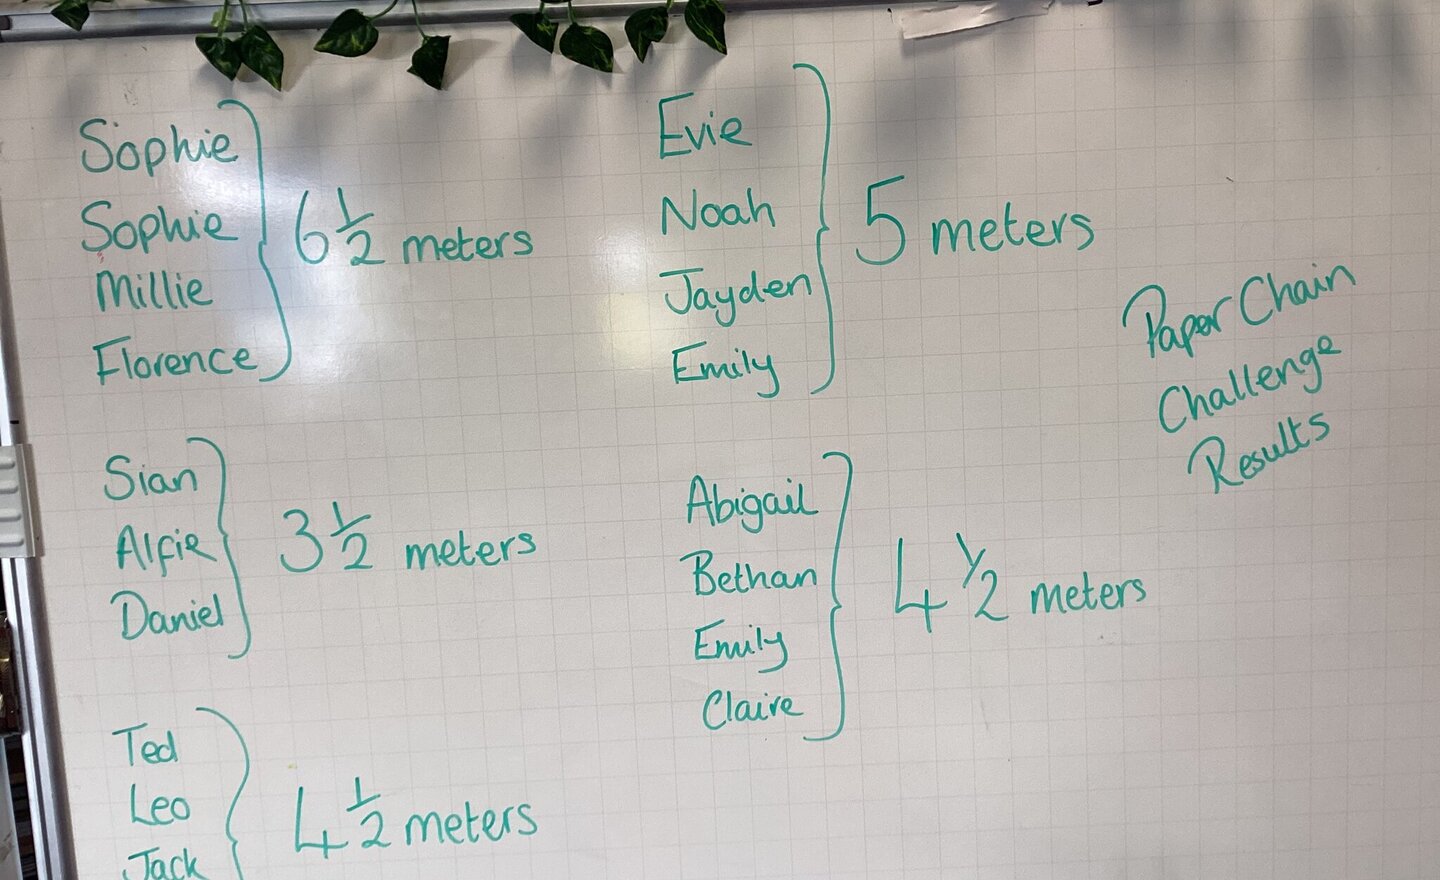 Sophie
Sophie
Millie
Florence
6 1/2 meters
Evie
Noah
Jayden
Emily
5 meters
Paper Chain
Challenge
Results
Sian
Alfie
Daniel
3 1/2 meters
Abigail
Bethan
Emily
Claire
4 1/2 meters
Ted
Leo
Jack
4 1/2 meters